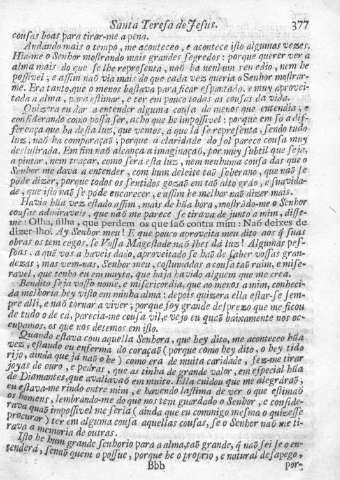 Santa Teresa de Jesus. 377
cousas boas para tirar-me a pena.
Andando mais o tempo, me aconteceo, e acontece isto algumas vezes.
Hia-me o Senhor mostrando mais grandes segredos: porque querer ver a
alma mais do que se lhe representa, naõ ha nenhum remedio, nem he
possivel; e assim naõ via mais do que cada vez queria o Senhor mostrar-
me. Era tanto, que o menos bastava para ficar espantado, e muy aprovei-
tada a alma, para estimar, e ter em pouco todas as cousas da vida.
Quizera eu dar a entender alguma cousa do menos que entendia, e
considerando como possa ser, acho que he impossivel: porque em só a dif-
ferença que ha desta luz, que vemos, à que lá se representa, sendo tudo
luz, naõ ha comparaçaõ, porque a claridade do sol parece cousa muy
deslustrada. Em fim naõ alcança a imaginaçaõ, por muy subtil que seja,
a pintar, nem traçar, como será esta luz, nem nenhuma cousa das que o
Senhor me dava a entender, com hum deleite taõ soberano, que naõ se
póde dizer, porque todos os sentidos gozaõ em taõ alto gráo, e suavida-
de, que isto naõ se póde encarecer, e assim he melhor naõ dizer mais.
Havia hũa vez estado assim, mais de hũa hora, mostrãdo-me o Senhor
cousas admiraveis, que naõ me parece se tirava de junto a mim, disse-
me: Olha, filha, que perdem os que saõ contra mim: Naõ deixes de
dizer-lho. Ay Senhor meu! E que pouco aproveita meu dito aos q̃ suas
obras os tem cegos, se Vossa Magestade naõ lhes dá luz! Algumas pes-
soas, a quẽ vos a haveis dado, aproveitado se haõ de saber vossas gran-
dezas; mas vem-nas, Senhor meu, costumadas a cousa taõ ruim, e mise-
ravel, que tenho eu em muyto, que haja havido alguem que me crea.
Bendito seja vosso nome, e misericordia, que ao menos a mim, conheci-
da melhoria hey visto em minha alma: depois quizera ella estar-se sem-
pre alli, e naõ tornar a viver; porque foy grande desprezo que me ficou
de tudo o de cá, parecia-me cousa vil, e vejo eu quaõ baixamente nos oc-
cupamos, os que nos detemos em isto.
Quando estava com aquella Senhora, que hey dito, me aconteceo hũa
vez, estando eu enferma do coraçaõ (porque como hey dito, o hey tido
rijo, ainda que já naõ o he) como era de muita caridade, fez-me tirar
joyas de ouro, e pedras, que as tinha de grande valor, em especial hũa
de Diamantes, que avaliavaõ em muito. Ella cuidou que me alegraraõ,
eu estava-me rindo entre mim, e havendo lastima de ver o que estimaõ
os homens, lembrando-me do que nos tem guardado o Senhor, e conside-
rava quaõ impossivel me seria (ainda que eu commigo mesma o quizesse
procurar) ter em alguma cousa aquellas cousas, se o Senhor naõ me ti-
rava a memoria de outras.
Isto he hum grande senhorio para a alma, taõ grande, q̃ naõ sei se o en-
tenderá, senaõ quem o possue, porque he o proprio, e natural desapego,
Bbb por-